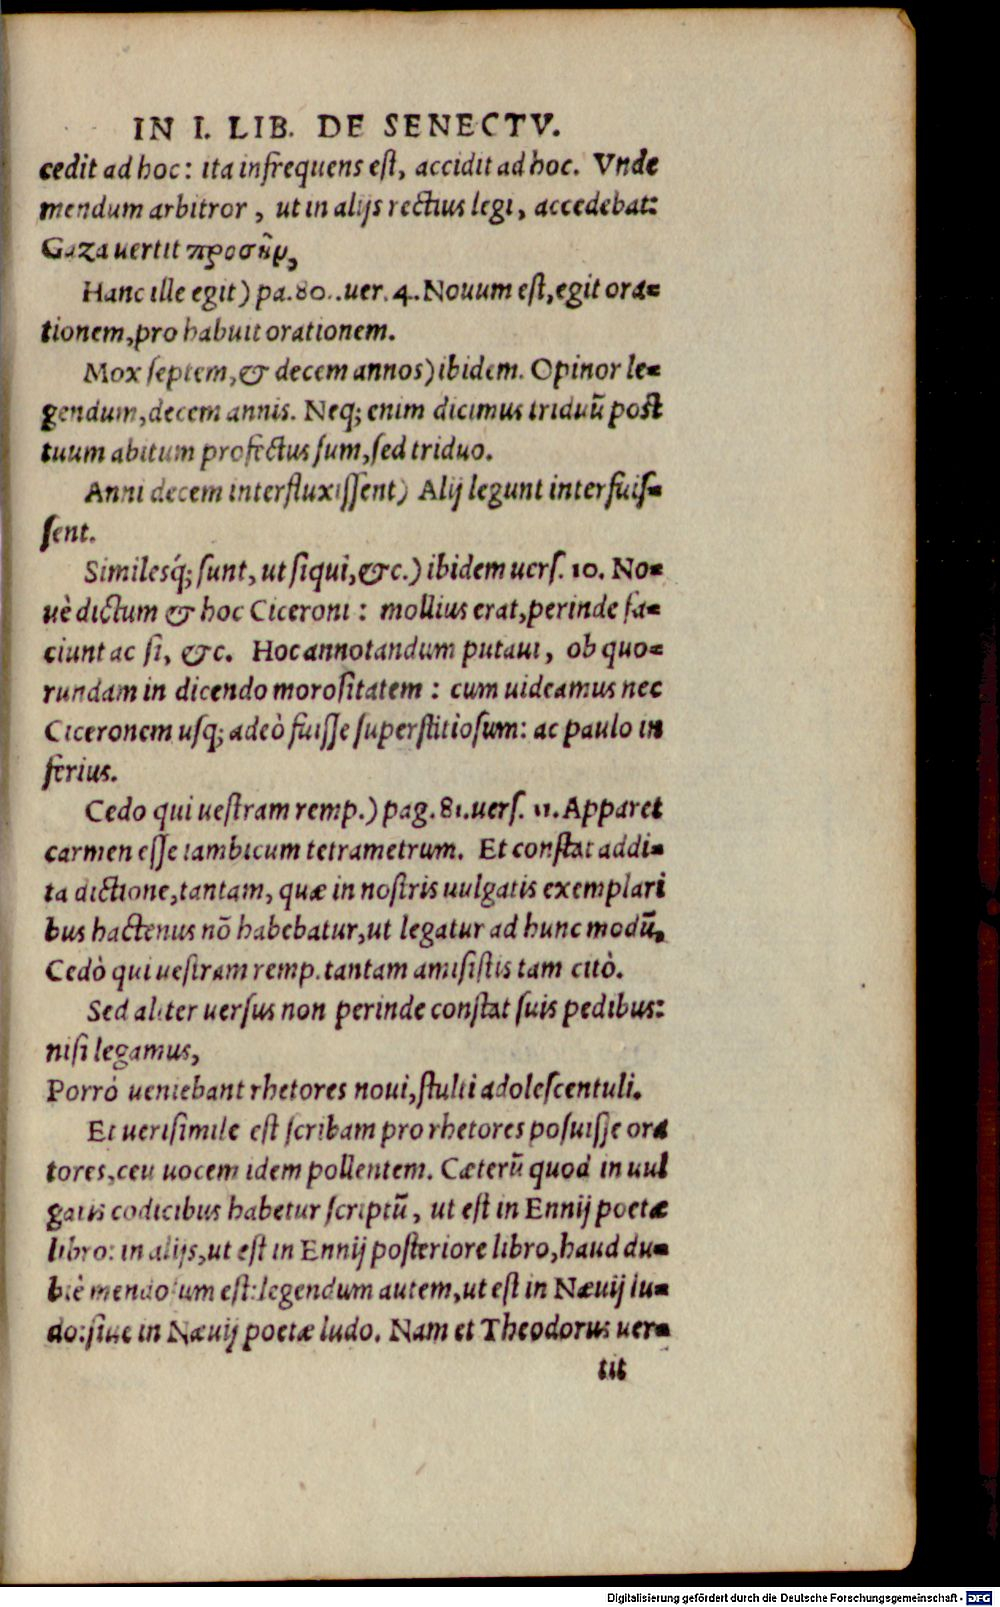 IN I. LIB. DE SENECTV.
cedit ad hoc: ita infrequens est, accidit ad hoc. Vnde
mendum arbitror, ut in alijs rectius legi, accedebat:
Gaza uertit προσῆν,
Hanc ille egit) pa. 80. uer. 4. Nouum est, egit ora=
tionem, pro habuit orationem.
Mox septem, & decem annos) ibidem. Opinor le=
gendum, decem annis. Neq; enim dicimus triduũ post
tuum abitum profectus sum, sed triduo.
Anni decem interfluxissent) Alij legunt interfuis=
sent.
Similesq́; sunt, ut siqui, &c.) ibidem uers. 10. No=
uè dictum & hoc Ciceroni: mollius erat, perinde fa=
ciunt ac si, &c. Hoc annotandum putaui, ob quo=
rundam in dicendo morositatem: cum uideamus nec
Ciceronem usq; adeò fuisse superstitiosum: ac paulo in
ferius.
Cedo qui uestram remp.) pag. 81. uers. 11. Apparet
carmen esse iambicum tetrametrum. Et constat addi=
ta dictione, tantam, quæ in nostris uulgatis exemplari
bus hactenus nõ habebatur, ut legatur ad hunc modũ,
Cedò qui uestram remp. tantam amisistis tam citò.
Sed aliter uersus non perinde constat suis pedibus:
nisi legamus,
Porrò ueniebant rhetores noui, stulti adolescentuli.
Et uerisimile est scribam pro rhetores posuisse ora
tores, ceu uocem idem pollentem. Cæterũ quod in uul
gatis codicibus habetur scriptũ, ut est in Ennij poetæ
libro: in alijs, ut est in Ennij posteriore libro, haud du=
biè mendosum est: legendum autem, ut est in Næuij lu=
do: siue in Næuij poetæ ludo. Nam et Theodorus uer=
tit
Digitalisierung gefördert durch die Deutsche Forschungsgemeinschaft - DFG